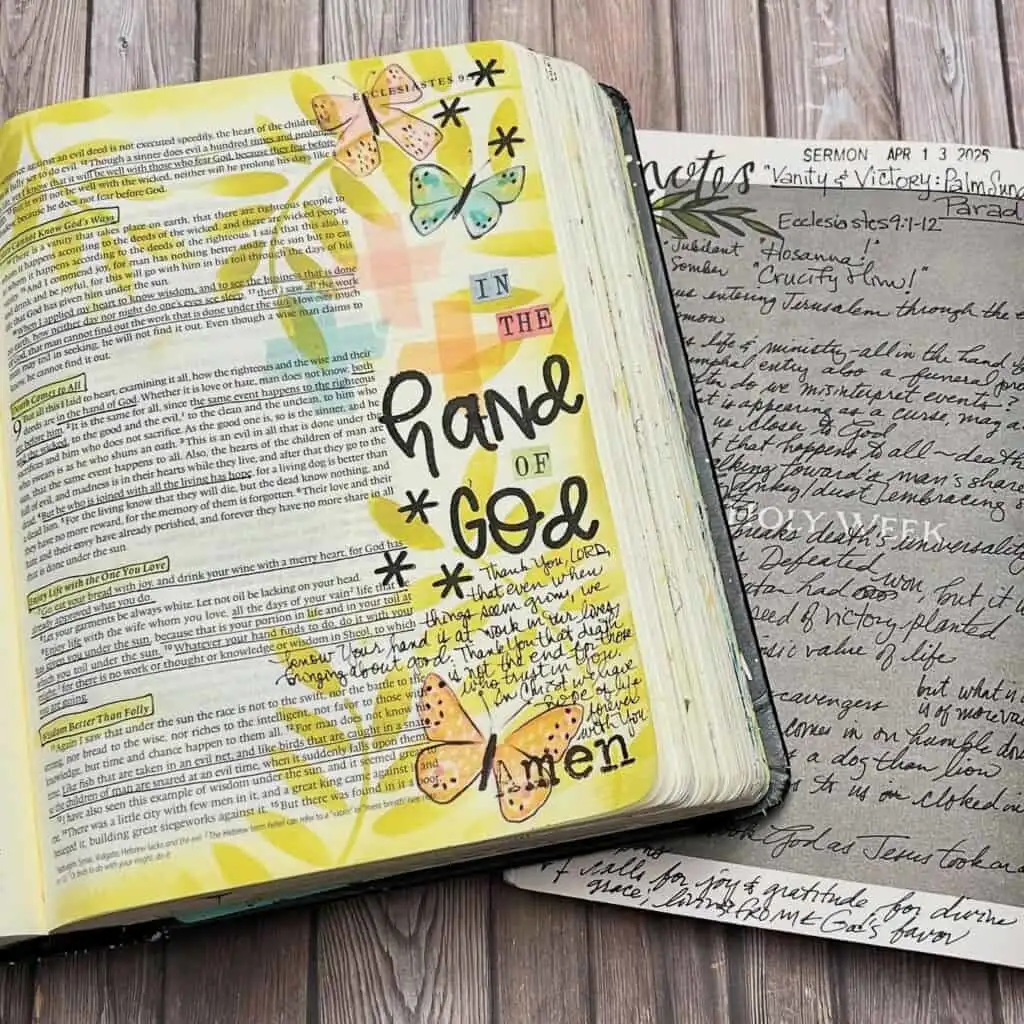 ECCLESIASTES 9:
against an evil deed is not executed speedily, the heart of the children
fully set to do evil. 12 Though a sinner does evil a hundred times and prolongs
yet I know that it will be well with those who fear God, because they fear before
will not be well with the wicked, neither will he prolong his days like a
because he does not fear before God.
Cannot Know God's Ways
There is a vanity that takes place on earth, that there are righteous people
whom it happens according to the deeds of the wicked, and there are wicked people
whom it happens according to the deeds of the righteous. I said that this also is
15 And I commend joy, for man has nothing better under the sun but to eat
drink and be joyful, for this will go with him in his toil through the days of his
that God has given him under the sun.
16 When I applied my heart to know wisdom, and to see the business that is done
earth, how neither day nor night do one's eyes see sleep, 17 then I saw all the work
of God, that man cannot find out the work that is done under the sun. However much
man may toil in seeking, he will not find it out. Even though a wise man claims to
know, he cannot find it out.
Death Comes to All
9 But all this I laid to heart, examining it all, how the righteous and the wise and their
deeds are in the hand of God. Whether it is love or hate, man does not know; both
are before him. 2 It is the same for all, since the same event happens to the righteous
and the wicked, to the good and the evil, to the clean and the unclean, to him who
sacrifices and him who does not sacrifice. As the good one is, so is the sinner, and he
who swears is as he who shuns an oath. 3 This is an evil in all that is done under the
sun, that the same event happens to all. Also, the hearts of the children of man are
full of evil, and madness is in their hearts while they live, and after that they go to the
dead. 4 But he who is joined with all the living has hope, for a living dog is better than
a dead lion. 5 For the living know that they will die, but the dead know nothing, and
they have no more reward, for the memory of them is forgotten. 6 Their love and their
hate and their envy have already perished, and forever they have no more share in all
that is done under the sun.
Enjoy Life with the One You Love
7 Go, eat your bread with joy, and drink your wine with a merry heart, for God has
already approved what you do.
8 Let your garments be always white. Let not oil be lacking on your head.
9 Enjoy life with the wife whom you love, all the days of your vain life that
he has given you under the sun, because that is your portion in life and in your toil at
which you toil under the sun. 10 Whatever your hand finds to do, do it with your
might, for there is no work or thought or knowledge or wisdom in Sheol, to which
you are going.
Wisdom Better Than Folly
11 Again I saw that under the sun the race is not to the swift, nor the battle to the
strong, nor bread to the wise, nor riches to the intelligent, nor favor to those with
knowledge, but time and chance happen to them all. 12 For man does not know his
time. Like fish that are taken in an evil net, and like birds that are caught in a snare,
so the children of man are snared at an evil time, when it suddenly falls upon them.
13 I have also seen this example of wisdom under the sun, and it seemed great to
me. 14 There was a little city with few men in it, and a great king came against it and
besieged it, building great siegeworks against it. 15 But there was found in it a poor
IN
THE
hand
OF
GOd
Thank You, LORD,
that even when
things seem grim, we
know Your hand is at work in our lives,
bringing about good. Thank You that death
is not the end for those
who trust in You.
In Christ we have
hope of life
forever
with You
Amen
notes
SERMON APR 13 2025
"Vanity & Victory: Palm Sun
Parad
Ecclesiastes 9:1-12
Jubilant "Hosanna!"
Somber "Crucify Him!"
entering Jerusalem through the
life & ministry - all in the hand of
entry also a funeral pro
do we misinterpret events?
appearing as a curse, may
us closer to God
that happens to all ~ death
towards man's share
donkey/dust, embracing
HOLY WEEK
breaks death's universality
Defeated
had won, but it
seed of victory planted
value of life
but what
scavengers is of more va
comes in on humble don
a dog than lion
to us or cloked in
God as Jesus took
calls for joy & gratitude for divine
grace; living FROM God's favor